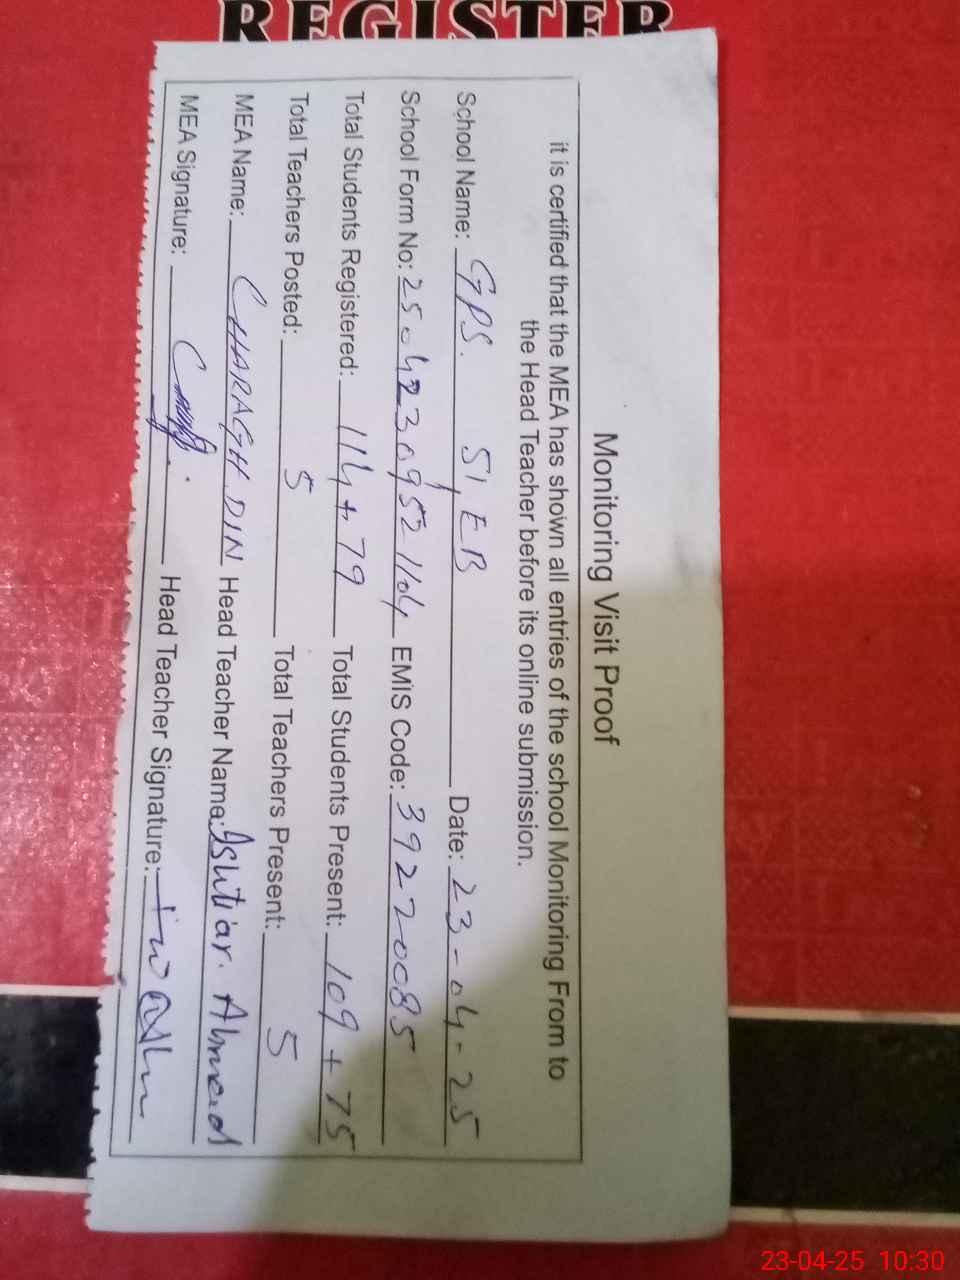 REGISTER
Monitoring Visit Proof
it is certified that the MEA has shown all entries of the school Monitoring From to
the Head Teacher before its online submission.
School Name: GPS. 51, EB Date: 23-04-25
School Form No: 25042309521104 EMIS Code: 39220085
Total Students Registered: 114+79 Total Students Present: 109+75
Total Teachers Posted: 5 Total Teachers Present: 5
MEA Name: CHARAGH DIN Head Teacher Name: Ishtiar. Ahmed
MEA Signature: Head Teacher Signature:
23-04-25 10:30